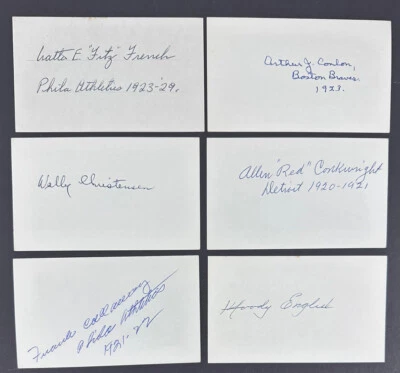 Walter E "Fitz" French
Phila Athletics 1923-29.
Arthur J. Conlon,
Boston Braves.
1923.
Wally Christensen
Allen "Red" Conkwright
Detroit 1920-1921
Frank Callaway
Phila Athletics
1921-22
Woody English